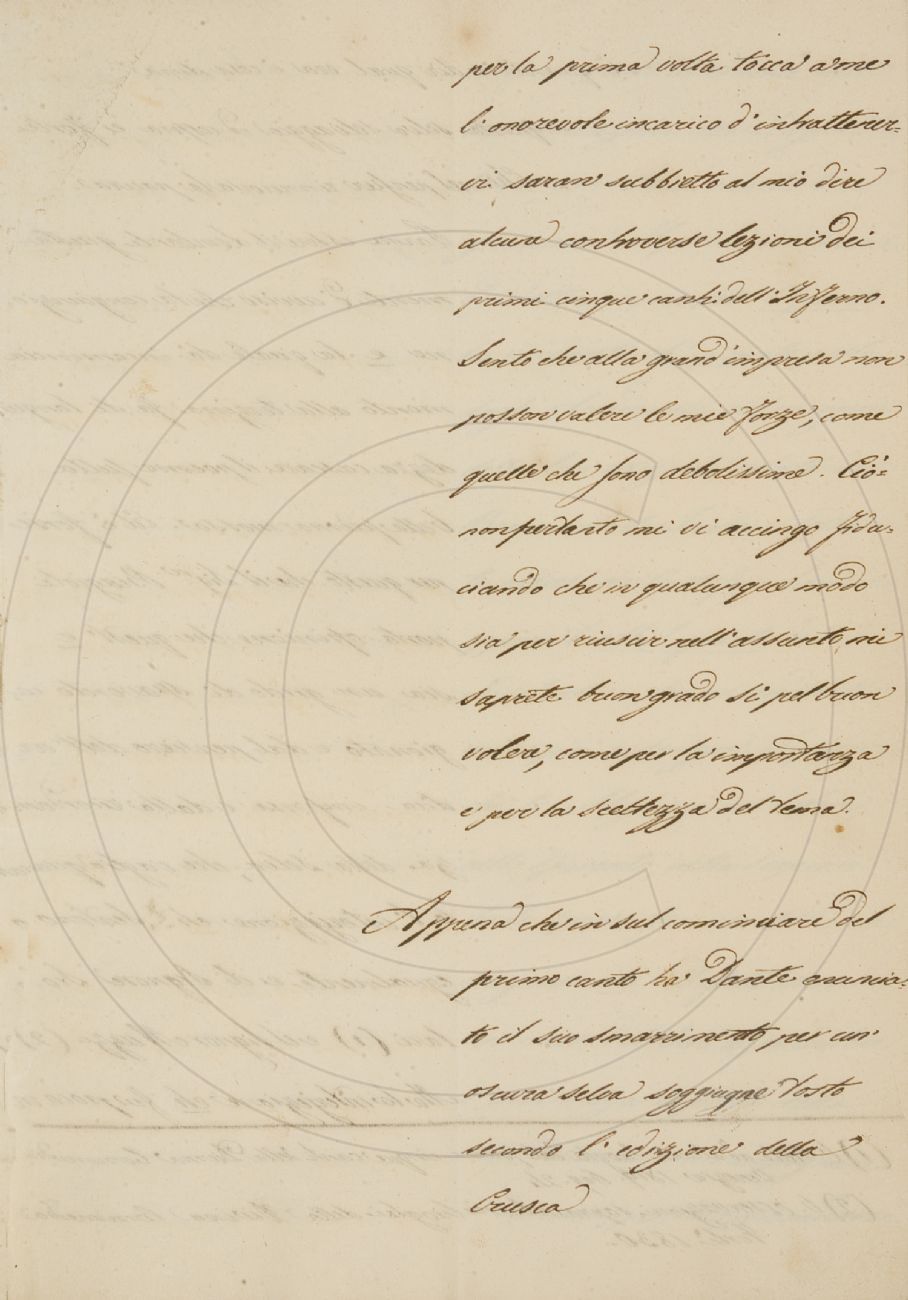 per la prima volta tocca a me
l'onorevole incarico d'intratterer=
vi saran subbietto al mio dire
alcune controverse lezioni dei
primi cinque canti dell'Inferno.
Sento che alla grand'impresa non
posson valere le mie forze, come
quelle che sono debolissime. Ciò=
nonpertanto mi vi accingo fidu=
ciando che in qualunque modo
sia per riuscir nell'assunto mi
saprete buon grado sì pel buon
volere, come per la importanza
e per la sceltezza del tema.
Appena che in sul cominciare del
primo canto ha Dante anuncia=
to il suo smarrimento per un'
oscura selva soggiugne tosto
secondo l'edizione della
Crusca